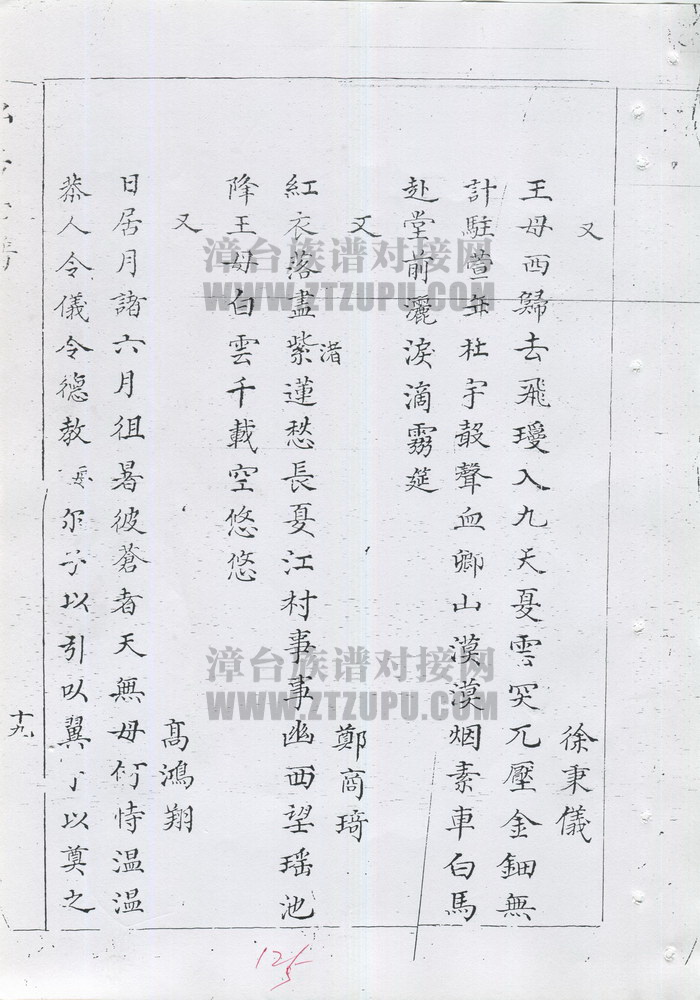 又
徐秉儀
王母西歸去飛瓊入九天夏雲突兀壓金鈿無
計駐萱年杜宇嗀聲血卿山漠漠烟素車白馬
赴堂前灑淚滴霧筵
又
鄭商琦
紅衣落盡紫蓮愁長夏江村事事幽西望瑶池
渚
降王母白雲千載空悠悠
又
高鴻翔
日居月諸六月徂暑彼蒼者天無母何恃温温
恭人令儀令德教每尔子以引以翼以奠之
十九
125
漳台族谱对接网
WWW.ZTZUPU.COM
漳台族谱对接网
WWW.ZTZUPU.COM